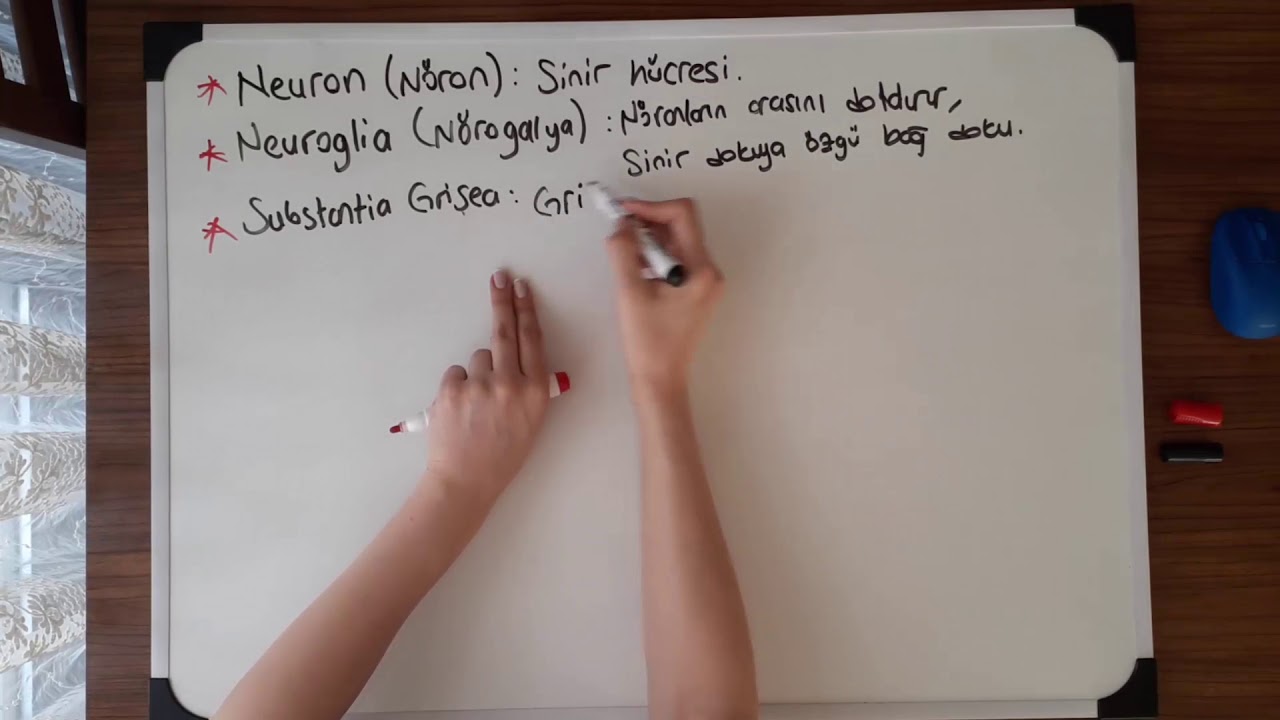 * Neuron (Nöron): Sinir hücresi.
* Neuroglia (Nörogalya) : Nöronların arasını doldurur,
Sinir dokuya özgü bağ doku.
* Substantia Grisea: Gri